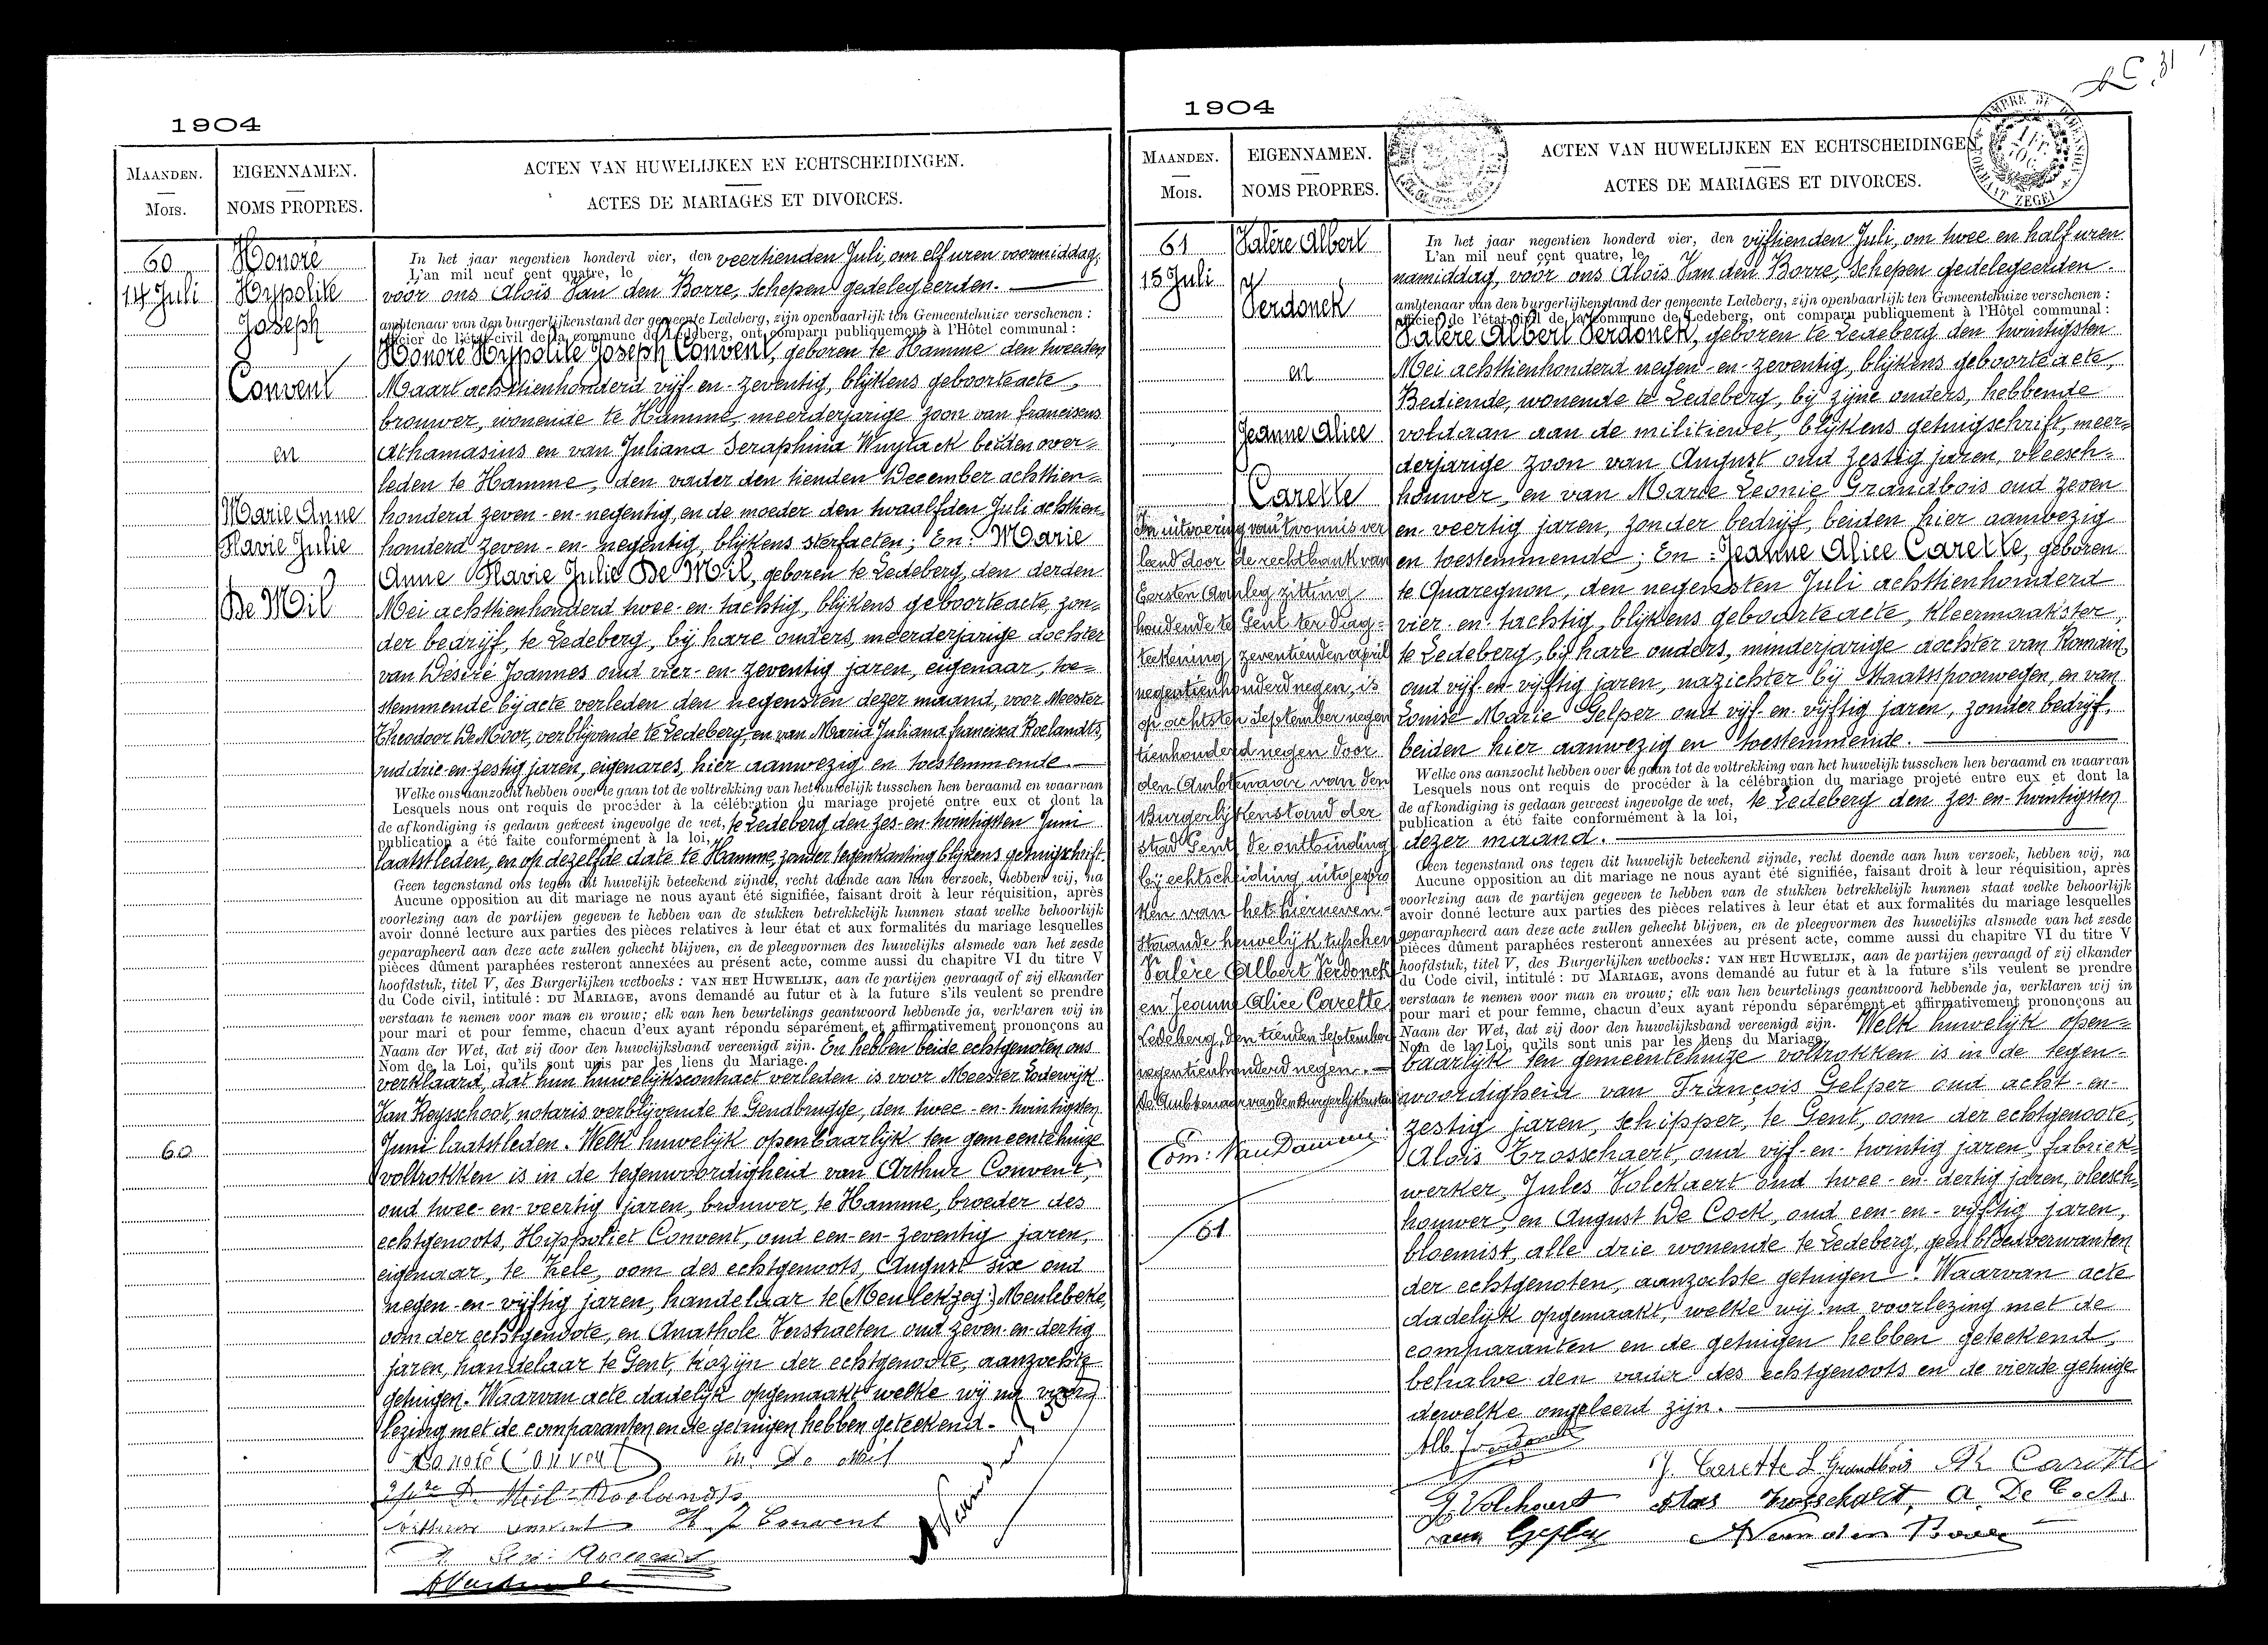 1904
MAANDEN.
MOIS.
EIGENNAMEN.
NOMS PROPRES.
ACTEN VAN HUWELIJKEN EN ECHTSCHEIDINGEN.
ACTES DE MARIAGES ET DIVORCES.
60
14 Juli
Honoré
Hypolite
Joseph
Convent
en
Marie Anne
Flavie Julie
De Mil
60
In het jaar negentien honderd vier, den veertienden Juli, om elf uren voormiddag,
L'an mil neuf cent quatre, le
vóór ons Aloïs Van den Borre, Schepen gedelegeerden.
ambtenaar van den burgerlijkenstand der gemeente Ledeberg, zijn openbaarlijk ten Gemeentehuize verschenen :
officier de l'état-civil de la commune de Ledeberg, ont comparu publiquement à l'Hôtel communal :
Honoré Hypolite Joseph Convent, geboren te Hamme den tweeden
Maart achttienhonderd vijf-en-zeventig, blijkens geboorteacte,
brouwer, wonende te Hamme, meerderjarige zoon van franciscus
Athamasius en van Juliana Seraphina Wuytack beiden over=
leden te Hamme, den vader den tienden December achttien=
honderd zeven-en-negentig, en de moeder den twaalfden Juli achttien
honderd zeven-en-negentig, blijkens sterfacten; En: Marie
Anne Flavie Julie De Mil, geboren te Ledeberg, den derden
Mei achttienhonderd twee-en-tachtig, blijkens geboorteacte, zon=
der bedrijf, te Ledeberg, bij hare ouders, meerderjarige dochter
van Désiré Joannes oud vier-en-zeventig jaren, eigenaar, toe=
stemmende bij acte verleden den negensten dezer maand, voor Meester
Theodoor De Moor, verblijvende te Ledeberg, en van Maria Juliana francisca Roelandts,
oud drie-en-zestig jaren, eigenares, hier aanwezig en toestemmende
Welke ons aanzocht hebben over te gaan tot de voltrekking van het huwelijk tusschen hen beraamd en waarvan
Lesquels nous ont requis de procéder à la célébration du mariage projeté entre eux et dont la
de afkondiging is gedaan geweest ingevolge de wet, te Ledeberg den zes-en-twintigsten Juni
publication a été faite conformément à la loi,
laatstleden, en op dezelfde date te Hamme, zonder tegenkanting blijkens getuigschrift.
Geen tegenstand ons tegen dit huwelijk beteekend zijnde, recht doende aan hun verzoek, hebben wij, na
Aucune opposition au dit mariage ne nous ayant été signifiée, faisant droit à leur réquisition, après
voorlezing aan de partijen gegeven te hebben van de stukken betrekkelijk hunnen staat welke behoorlijk
avoir donné lecture aux parties des pièces relatives à leur état et aux formalités du mariage lesquelles
geparapheerd aan deze acte zullen gehecht blijven, en de pleegvormen des huwelijks alsmede van het zesde
pièces dûment paraphées resteront annexées au présent acte, comme aussi du chapitre VI du titre V
hoofdstuk, titel V, des Burgerlijken wetboeks : VAN HET HUWELIJK, aan de partijen gevraagd of zij elkander
du Code civil, intitulé : DU MARIAGE, avons demandé au futur et à la future s'ils veulent se prendre
verstaan te nemen voor man en vrouw; elk van hen beurtelings geantwoord hebbende ja, verklaren wij in
pour mari et pour femme, chacun d'eux ayant répondu séparément et affirmativement prononçons au
Naam der Wet, dat zij door den huwelijksband vereenigd zijn. En hebben beide echtgenoten ons
Nom de la Loi, qu'ils sont unis par les liens du Mariage.
verklaard, dat hun huwelijkscontract verleden is voor Meester Lodewijk
Van Reysschoot, notaris verblijvende te Gendbrugge, den twee-en-twintigsten
Juni laatstleden. Welk huwelijk openbaarlijk ten gemeentehuize
voltrokken is in de tegenwoordigheid van Arthur Convent,
oud twee-en-veertig jaren, brouwer, te Hamme, broeder des
echtgenoots, Hippoliet Convent, oud een-en-zeventig jaren,
eigenaar, te Zele, oom des echtgenoots, August Six oud
negen-en-vijftig jaren, handelaar te (Meulekzeg:) Meulebeke,
oom der echtgenoote, en Anathole Verstraeten oud zeven-en-dertig
jaren, handelaar te Gent, kozijn der echtgenoote, aanzochte
getuigen. Waarvan acte dadelijk opgemaakt welke wij na voor
lezing met de comparanten en de getuigen hebben geteekend.
Honoré Convent M. De Mil
De Mil-Roelandts
Arthur Convent H. J. Convent
1904
MAANDEN.
MOIS.
EIGENNAMEN.
NOMS PROPRES.
ACTEN VAN HUWELIJKEN EN ECHTSCHEIDINGEN
ACTES DE MARIAGES ET DIVORCES.
31
61
15 Juli
Valère Albert
Verdonck
en
Jeanne Alice
Carette
In uitvoering van 't vonnis ver
leend door de rechtbank van
Eersten Aanleg zitting
houdende te Gent ter dag=
teekening zeventienden april
negentienhonderd negen, is
op achtsten September negen
tienhonderd negen door
den Ambtenaar van den
Burgerlijkenstand der
stad Gent de ontbinding
bij echtscheiding uitgespro
ken van het hierneven=
staande huwelijk tusschen
Valère Albert Verdonck
en Jeanne Alice Carette
Ledeberg, den tienden September
negentienhonderd negen.
De Ambtenaar van den Burgerlijkenstand
Om: Van Damme
61
In het jaar negentien honderd vier, den vijftienden Juli, om twee en half uren
L'an mil neuf cent quatre, le
namiddag, vóór ons Aloïs Van den Borre, Schepen gedelegeerden.
ambtenaar van den burgerlijkenstand der gemeente Ledeberg, zijn openbaarlijk ten Gemeentehuize verschenen :
officier de l'état-civil de la commune de Ledeberg, ont comparu publiquement à l'Hôtel communal :
Valère Albert Verdonck, geboren te Ledeberg den twintigsten
Mei achttienhonderd negen-en-zeventig, blijkens geboorteacte,
Bediende, wonende te Ledeberg, bij zijne ouders, hebbende
voldaan aan de militiewet, blijkens getuigschrift, meer=
derjarige zoon van August oud zestig jaren, vleesch=
houwer, en van Marie Leonie Grandbois oud zeven
en-veertig jaren, zonder bedrijf, beiden hier aanwezig
en toestemmende; En: Jeanne Alice Carette, geboren
te Quaregnon, den negensten Juli achttienhonderd
vier-en-tachtig, blijkens geboorteacte, Kleermaakster,
te Ledeberg, bij hare ouders, minderjarige dochter van Romain,
oud vijf-en-vijftig jaren, nazichter bij Staatsspoorwegen, en van
Louise Marie Gelper oud vijf-en-vijftig jaren, zonder bedrijf,
beiden hier aanwezig en toestemmende.
Welke ons aanzocht hebben over te gaan tot de voltrekking van het huwelijk tusschen hen beraamd en waarvan
Lesquels nous ont requis de procéder à la célébration du mariage projeté entre eux et dont la
de afkondiging is gedaan geweest ingevolge de wet, te Ledeberg den zes-en-twintigsten
publication a été faite conformément à la loi,
dezer maand.
Geen tegenstand ons tegen dit huwelijk beteekend zijnde, recht doende aan hun verzoek, hebben wij, na
Aucune opposition au dit mariage ne nous ayant été signifiée, faisant droit à leur réquisition, après
voorlezing aan de partijen gegeven te hebben van de stukken betrekkelijk hunnen staat welke behoorlijk
avoir donné lecture aux parties des pièces relatives à leur état et aux formalités du mariage lesquelles
geparapheerd aan deze acte zullen gehecht blijven, en de pleegvormen des huwelijks alsmede van het zesde
pièces dûment paraphées resteront annexées au présent acte, comme aussi du chapitre VI du titre V
hoofdstuk, titel V, des Burgerlijken wetboeks : VAN HET HUWELIJK, aan de partijen gevraagd of zij elkander
du Code civil, intitulé : DU MARIAGE, avons demandé au futur et à la future s'ils veulent se prendre
verstaan te nemen voor man en vrouw; elk van hen beurtelings geantwoord hebbende ja, verklaren wij in
pour mari et pour femme, chacun d'eux ayant répondu séparément et affirmativement prononçons au
Naam der Wet, dat zij door den huwelijksband vereenigd zijn. Welk huwelijk open=
Nom de la Loi, qu'ils sont unis par les liens du Mariage.
baarlijk ten gemeentehuize voltrokken is in de tegen=
woordigheid van François Gelper oud acht-en-
zestig jaren, schipper, te Gent, oom der echtgenoote,
Aloïs Trosschaert, oud vijf-en-twintig jaren, fabriek=
werker, Jules Volckaert oud twee-en-dertig jaren, vleesch=
houwer, en August De Cock, oud een-en-vijftig jaren,
bloemist, alle drie wonende te Ledeberg, geen bloedverwanten
der echtgenoten, aanzochte getuigen. Waarvan acte
dadelijk opgemaakt, welke wij na voorlezing met de
comparanten en de getuigen hebben geteekend,
behalve den vader des echtgenoots en de vierde getuige
dewelke ongeleerd zijn.
Alb. Verdonck
J. Carette L Grandbois R Carette
J. Volckaert Aloïs Trosschaert, A. De Cock
A Van den Borre